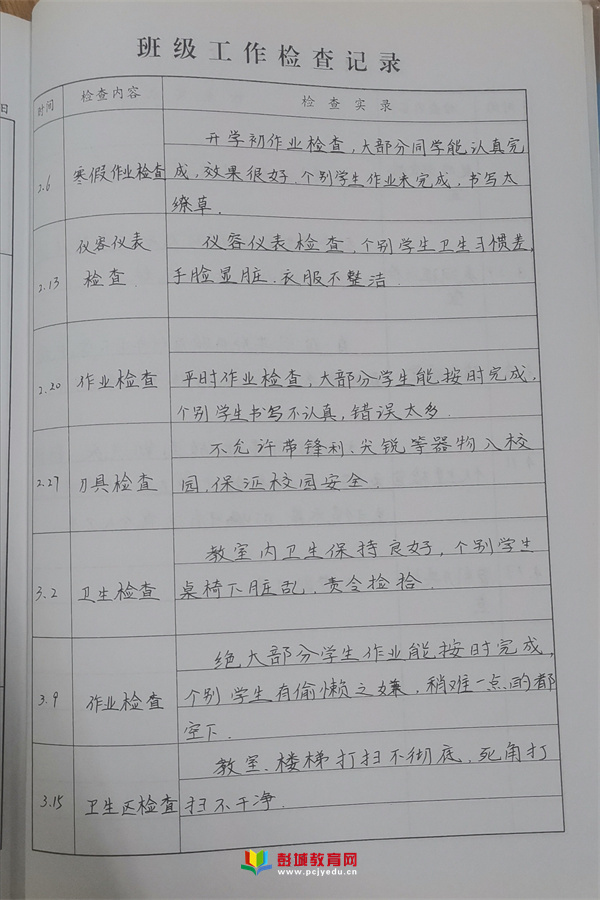 班级工作检查记录
日
时间 检查内容 检查实录
开学初作业检查,大部分同学能认真完
2.6 寒假作业检查 成,效果很好.个别学生作业未完成,书写太
缭草.
仪容仪表 仪容仪表检查,个别学生卫生习惯差,
2.13 检查. 手脸显脏.衣服不整洁.
2.20 作业检查 平时作业检查,大部分学生能按时完成,
个别学生书写不认真,错误太多.
不允许带锋利、尖锐等器物入校
2.27 刀具检查 园,保证校园安全.
教室内卫生保持良好,个别学生
3.2 卫生检查 桌椅下脏乱,责令捡拾.
绝大部分学生作业能按时完成,
3.9 作业检查 个别学生有偷懒之嫌,稍难一点的都
空下.
教室.楼梯打扫不彻底,死角打
3.15 卫生区检查 扫不干净.
彭城教育网
www.pcjyedu.cn